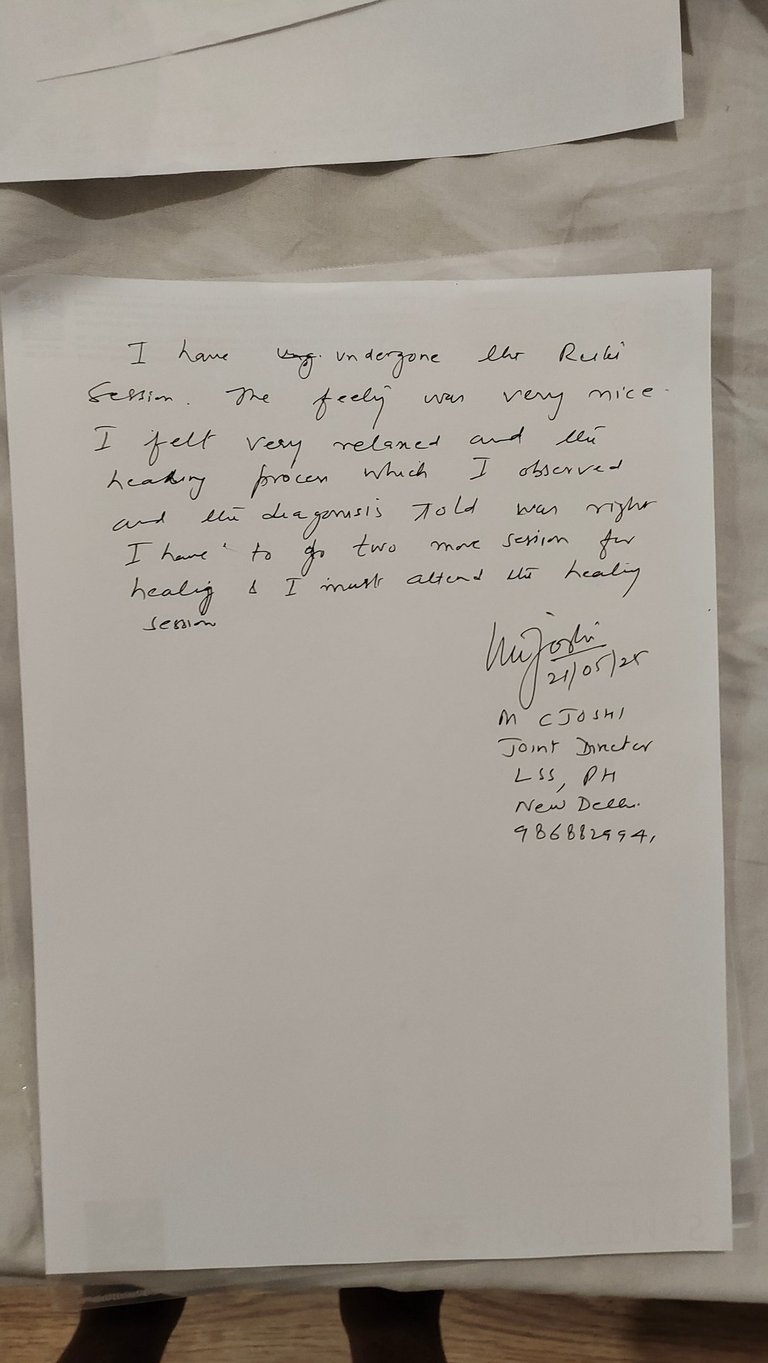 I have undergone the Reiki
Session. The feelig was very nice.
I felt very relaxed and the
healing process which I observed
and the diagonisis Told was right
I have to go two more session for
healig & I must attend the healig
session
21/05/25
M C JOSHI
Joint Director
LSS, PH
New Delhi.